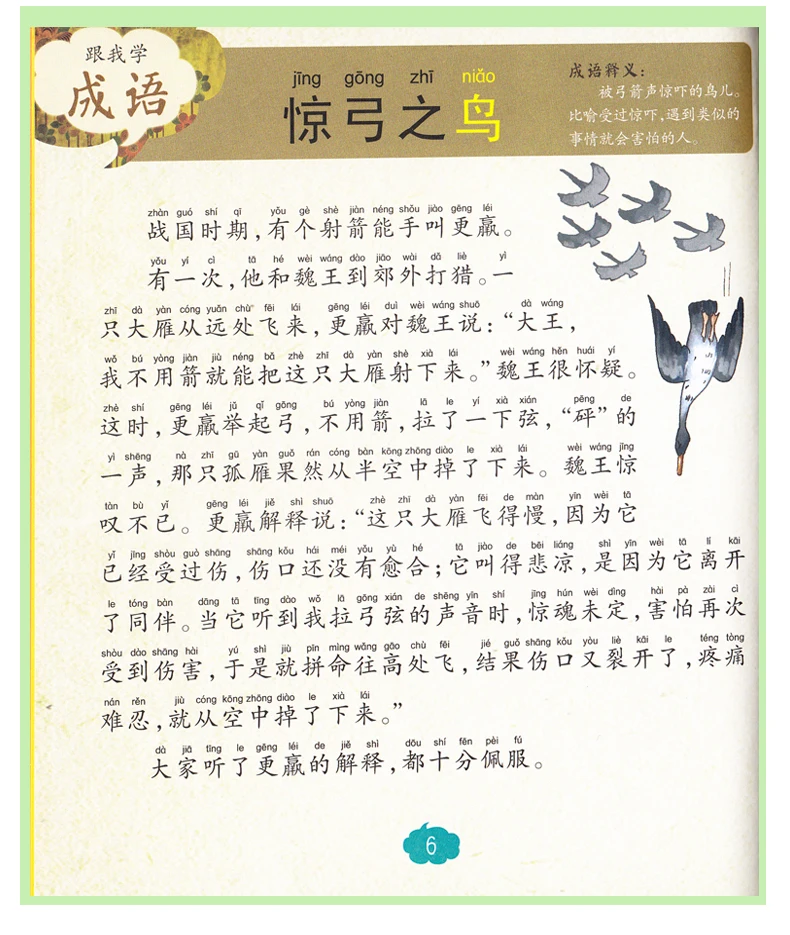 跟我学
成语
jīng gōng zhī niǎo
惊弓之鸟
成语释义：
被弓箭声惊吓的鸟儿。
比喻受过惊吓，遇到类似的
事情就会害怕的人。
zhàn guó shí qī yǒu gè shè jiàn néng shǒu jiào gēng léi
战国时期，有个射箭能手叫更羸。
yǒu yí cì tā hé wèi wáng dào jiāo wài dǎ liè yì
有一次，他和魏王到郊外打猎。一
zhī dà yàn cóng yuǎn chù fēi lái gēng léi duì wèi wáng shuō dà wáng
只大雁从远处飞来，更羸对魏王说：“大王，
wǒ bú yòng jiàn jiù néng bǎ zhè zhī dà yàn shè xià lái wèi wáng hěn huái yí
我不用箭就能把这只大雁射下来。”魏王很怀疑。
zhè shí gēng léi jǔ qǐ gōng bú yòng jiàn lā le yí xià xián pēng de
这时，更羸举起弓，不用箭，拉了一下弦，“砰”的
yì shēng nà zhī gū yàn guǒ rán cóng bàn kōng zhōng diào le xià lái wèi wáng jīng
一声，那只孤雁果然从半空中掉了下来。魏王惊
tàn bù yǐ gēng léi jiě shì shuō zhè zhī dà yàn fēi de màn yīn wèi tā
叹不已。更羸解释说：“这只大雁飞得慢，因为它
yǐ jīng shòu guò shāng shāng kǒu hái méi yǒu yù hé tā jiào de bēi liáng shì yīn wèi tā lí kāi
已经受过伤，伤口还没有愈合；它叫得悲凉，是因为它离开
le tóng bàn dāng tā tīng dào wǒ lā gōng xián de shēng yīn shí jīng hún wèi dìng hài pà zài cì
了同伴。当它听到我拉弓弦的声音时，惊魂未定，害怕再次
shòu dào shāng hài yú shì jiù pīn mìng wǎng gāo chù fēi jié guǒ shāng kǒu yòu liè kāi le téng tòng
受到伤害，于是就拼命往高处飞，结果伤口又裂开了，疼痛
nán rěn jiù cóng kōng zhōng diào le xià lái
难忍，就从空中掉了下来。”
dà jiā tīng le gēng léi de jiě shì dōu shí fēn pèi fú
大家听了更羸的解释，都十分佩服。
6